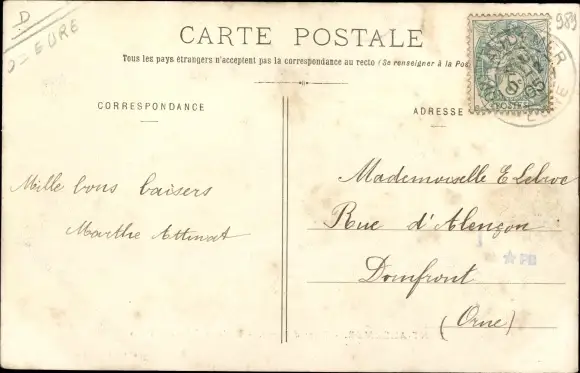 D
D = EURE
989
CARTE POSTALE
Tous les pays étrangers n'acceptent pas la correspondance au recto (Se renseigner à la Pos
CORRESPONDANCE
ADRESSE
POSTES
5
Mille bons baisers
Marthe
Mademoiselle E
Rue d'Alençon
Domfront
(Orne)
PB